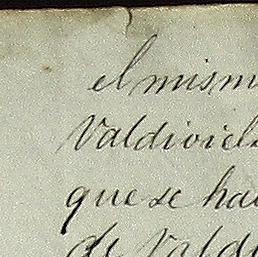 el mism
Valdiviels
que se ha
de Vald